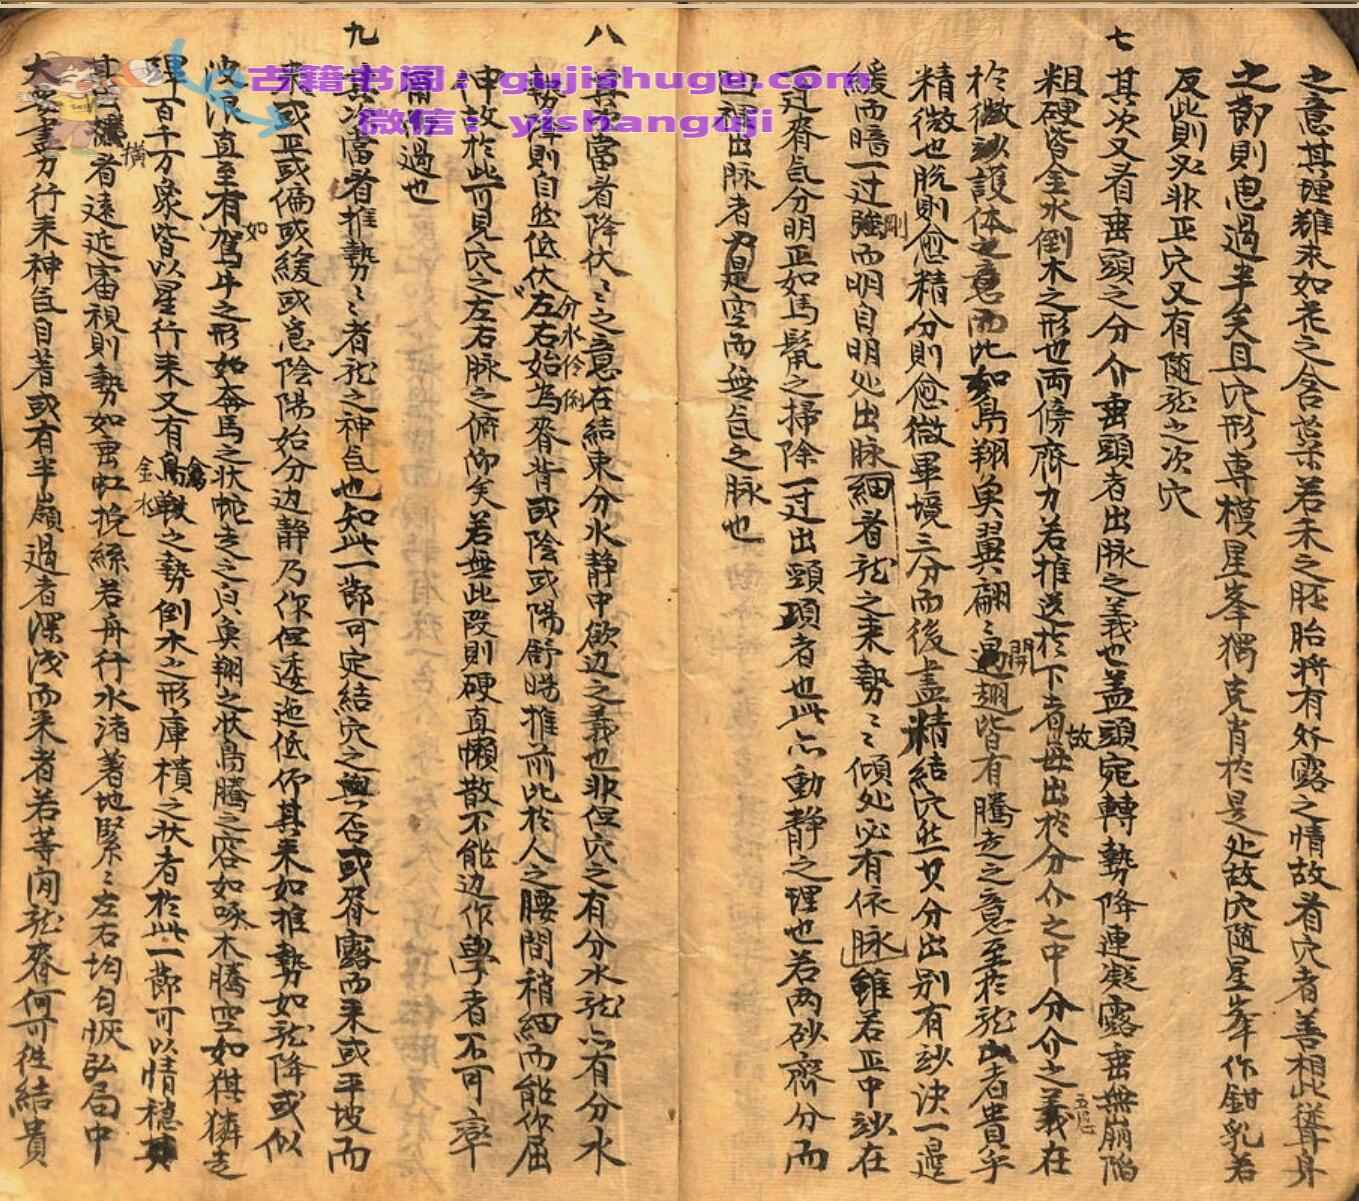 之意其理難求如花之含蕊若未之胚胎将有外露之情故看穴者善相此聳身
之節則思過半矣且穴形専模星峯獨克肖於是处故穴随星峯作鉗乳若
反此則必非正穴又有随龙之次穴
七
其次又看垂頭之分介垂頭者出脉之義也盖頭宛轉勢降連凝露垂無崩陷
粗硬皆金水倒木之形也両傍齊力若推送於下者毋出於分介之中分介之義在
故
於微玅護体之意而此如鳥翔魚翼翩〻過翅皆有騰走之意至於龙者貴乎
開
精微也脱則愈精分則愈微畢境三分而後盡精結穴然其分出别有玅決一邉
緩而暗一过強而明自明处出脉細者龙之来勢〻傾处必有依脉雖若正中玅在
剛
一过脊気分明正如馬鬣之掃除一过出頸項者也此亦動静之理也若両砂齊分而
凹裡出脉者乃是空而無気之脉也
八
其當者降伏〻之意在結束分水静中歛边之義也非但穴之有分水龙亦有分水
勢降則自然低伏左右始為脊背或陰或陽舒暢推前此於人之腰間稍細而能作屈
分水伶俐
伸故於此可見穴之左右脉之俯仰矣若無此段則硬直懶散不能边作學者不可率
爾看過也
九
其次當看推勢〻者龙之神気也知此一節可定結穴之與否或脊露而来或平坡而
来或正或偏或緩或急陰陽始分边静乃作但逶迤低仰其来如推勢如龙降或似
波浪直至有駕牛之形如奔馬之状蛇走之貞魚翔之状鳥騰之容如啄木騰空如猉獜走
如
理百千万象皆以星行来又有鳥戟之勢倒木之形庫樻之状者於此一節可以情穏其
金水
其玄機者遠近宙視則勢如垂虹挽絲若舟行水渚著地緊〻左右均匀恢弘局中
橫
大畧盡分行来神気自著或有半巔過者深浅而来者若等閒龙脊何可徃結貴
古籍书阁：gujishuge.com
微信：yishanguji